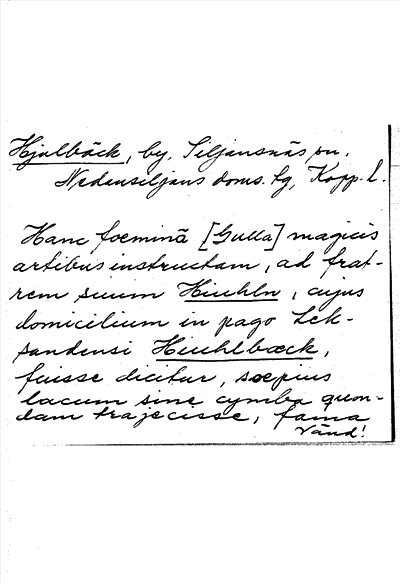 Hjulbäck, by, Siljansnäs sn.
Nedansiljans doms. tg, Kopp. l.
Hanc foeminā [Gulla] magicis
artibus instructam, ad frat-
rem suum Hiuhln, cujus
domicilium in pago Lek-
sandensi Hiuhlbæck,
fuisse dicitur, sæpius
lacum sine cymba quon-
dam trajecisse, fama
Vänd!